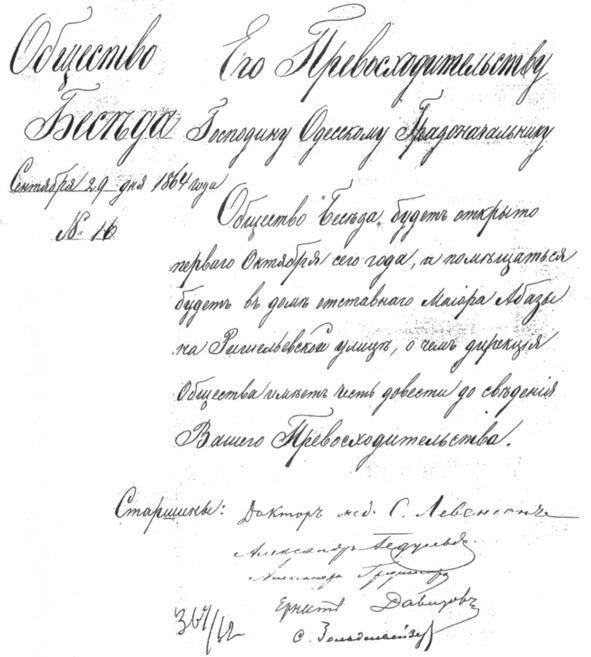 Общество
Бесѣда
Сентября 29 дня 1864 года
№ 16
Его Превосходительству
Господину Одесскому Градоначальнику
Общество "Бесѣда" будетъ открыто
перваго Октября сего года, и помѣщаться
будетъ въ домѣ отставнаго Маіора Абазы
на Ришельевской улицѣ, о чемъ дирекція
Общества имѣетъ честь довести до свѣденія
Вашего Превосходительства.
Старшины: Докторъ мед. С. Левенсонъ
Александръ
Александръ
Эрнстъ Давидовъ
С.
364/12